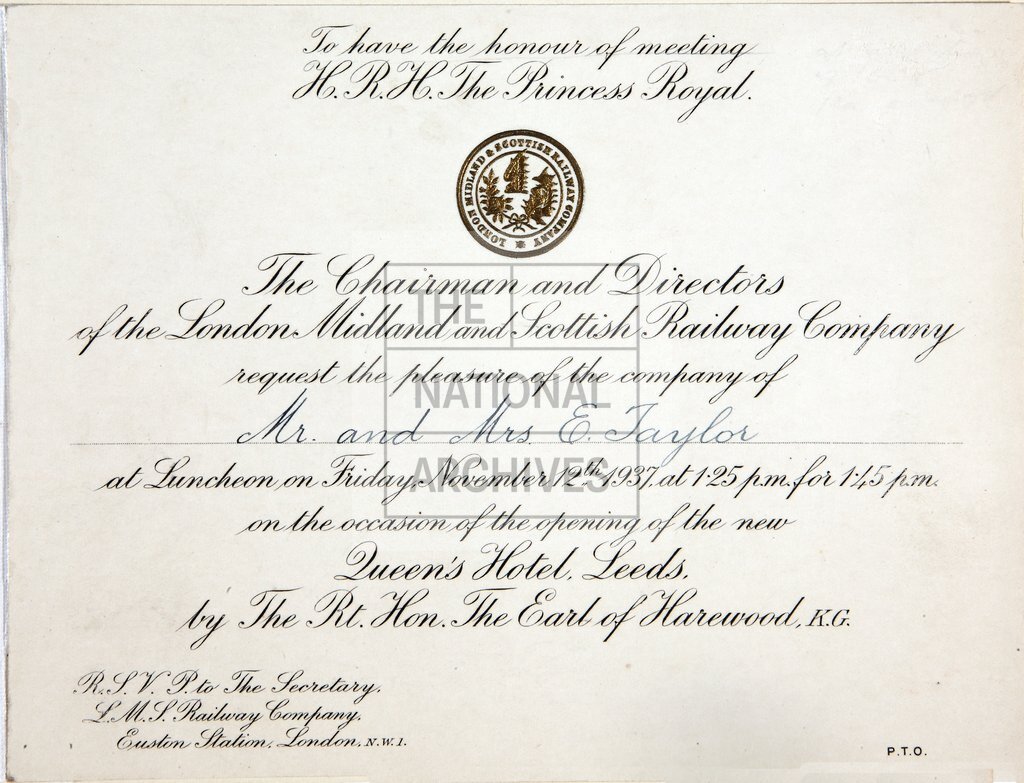 To have the honour of meeting
H.R.H. The Princess Royal.
LONDON MIDLAND & SCOTTISH RAILWAY COMPANY
The Chairman and Directors
of the London Midland and Scottish Railway Company
request the pleasure of the company of
Mr. and Mrs E. Taylor
at Luncheon, on Friday, November 12th 1937, at 1·25 p.m. for 1·45 p.m.
on the occasion of the opening of the new
Queen's Hotel, Leeds,
by The Rt. Hon. The Earl of Harewood, K.G.
R.S.V.P. to The Secretary,
L.M.S. Railway Company,
Euston Station, London, N.W.1.
P.T.O.
THE
NATIONAL
ARCHIVES